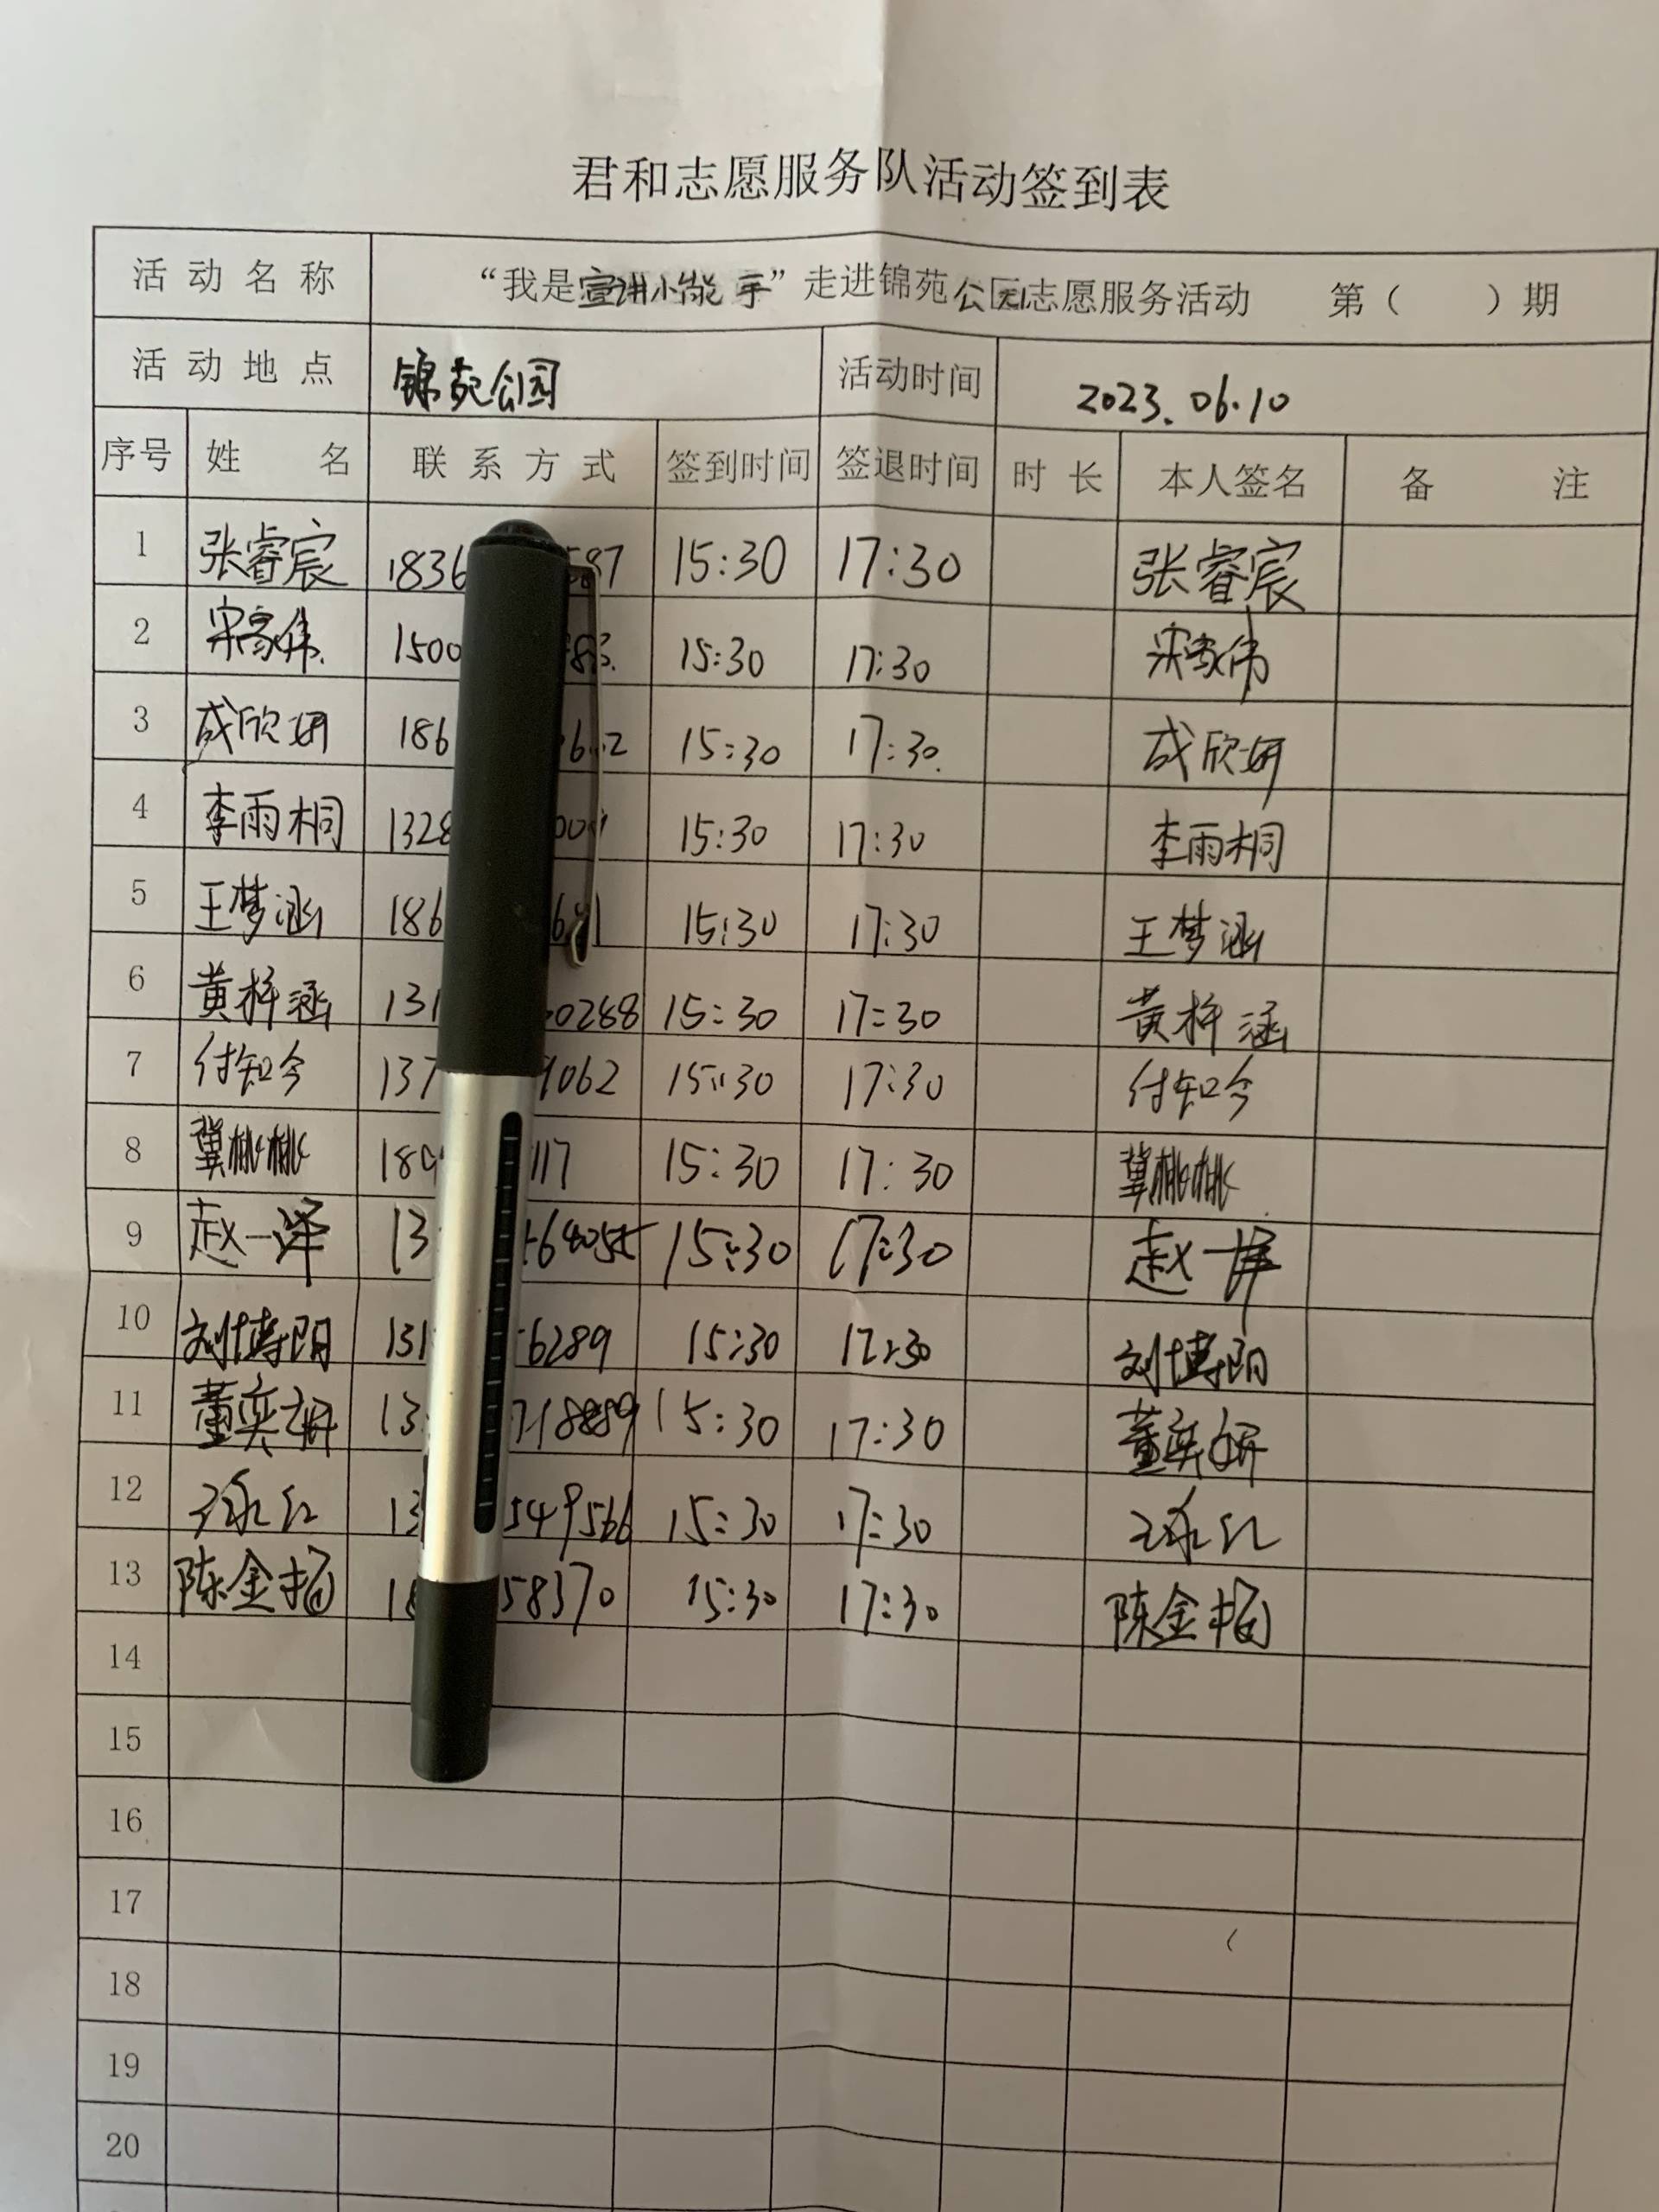 君和志愿服务队活动签到表
活动名称 “我是宣讲小能手”走进锦苑公园志愿服务活动 第（ ）期
活动地点 锦苑公园 活动时间 2023.06.10
序号 姓名 联系方式 签到时间 签退时间 时长 本人签名 备注
1 张睿宸 1836 587 15:30 17:30 张睿宸
2 宋家伟 1500 83 15:30 17:30 宋家伟
3 成欣妍 186 15:30 17:30 成欣妍
4 李雨桐 1328 15:30 17:30 李雨桐
5 王梦涵 186 15:30 17:30 王梦涵
6 黄梓涵 131 0288 15:30 17:30 黄梓涵
7 付知今 137 9062 15:30 17:30 付知今
8 冀桃桃 189 117 15:30 17:30 冀桃桃
9 赵一泽 13 64055 15:30 17:30 赵一泽
10 刘博阳 131 6289 15:30 17:30 刘博阳
11 董奕妍 13 718889 15:30 17:30 董奕妍
12 13 549566 15:30 17:30
13 陈金 18 58370 15:30 17:30 陈金
14
15
16
17
18
19
20